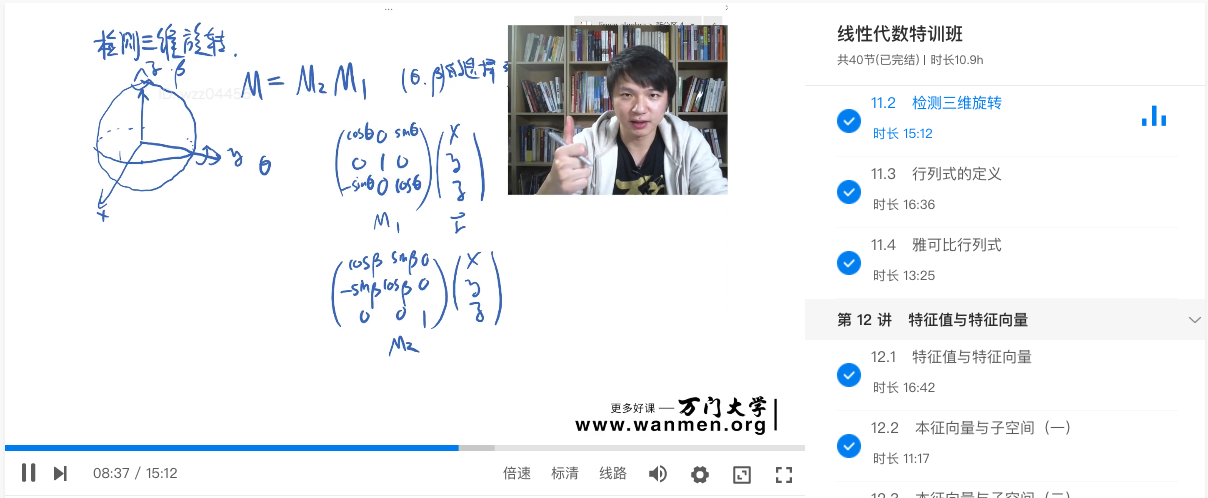 检测三维旋转.
z β
M = M₂ M₁
y θ
x
cosθ 0 sinθ x
0 1 0 y
-sinθ 0 cosθ z
M₁ r
cosβ sinβ 0 x
-sinβ cosβ 0 y
0 0 1 z
M₂
更多好课 — 万门大学
www.wanmen.org
08:37 / 15:12
倍速 标清 线路
线性代数特训班
共40节(已完结) | 时长10.9h
11.2 检测三维旋转
时长 15:12
11.3 行列式的定义
时长 16:36
11.4 雅可比行列式
时长 13:25
第 12 讲 特征值与特征向量
12.1 特征值与特征向量
时长 16:42
12.2 本征向量与子空间（一）
时长 11:17
12.3 本征向量与子空间（二）